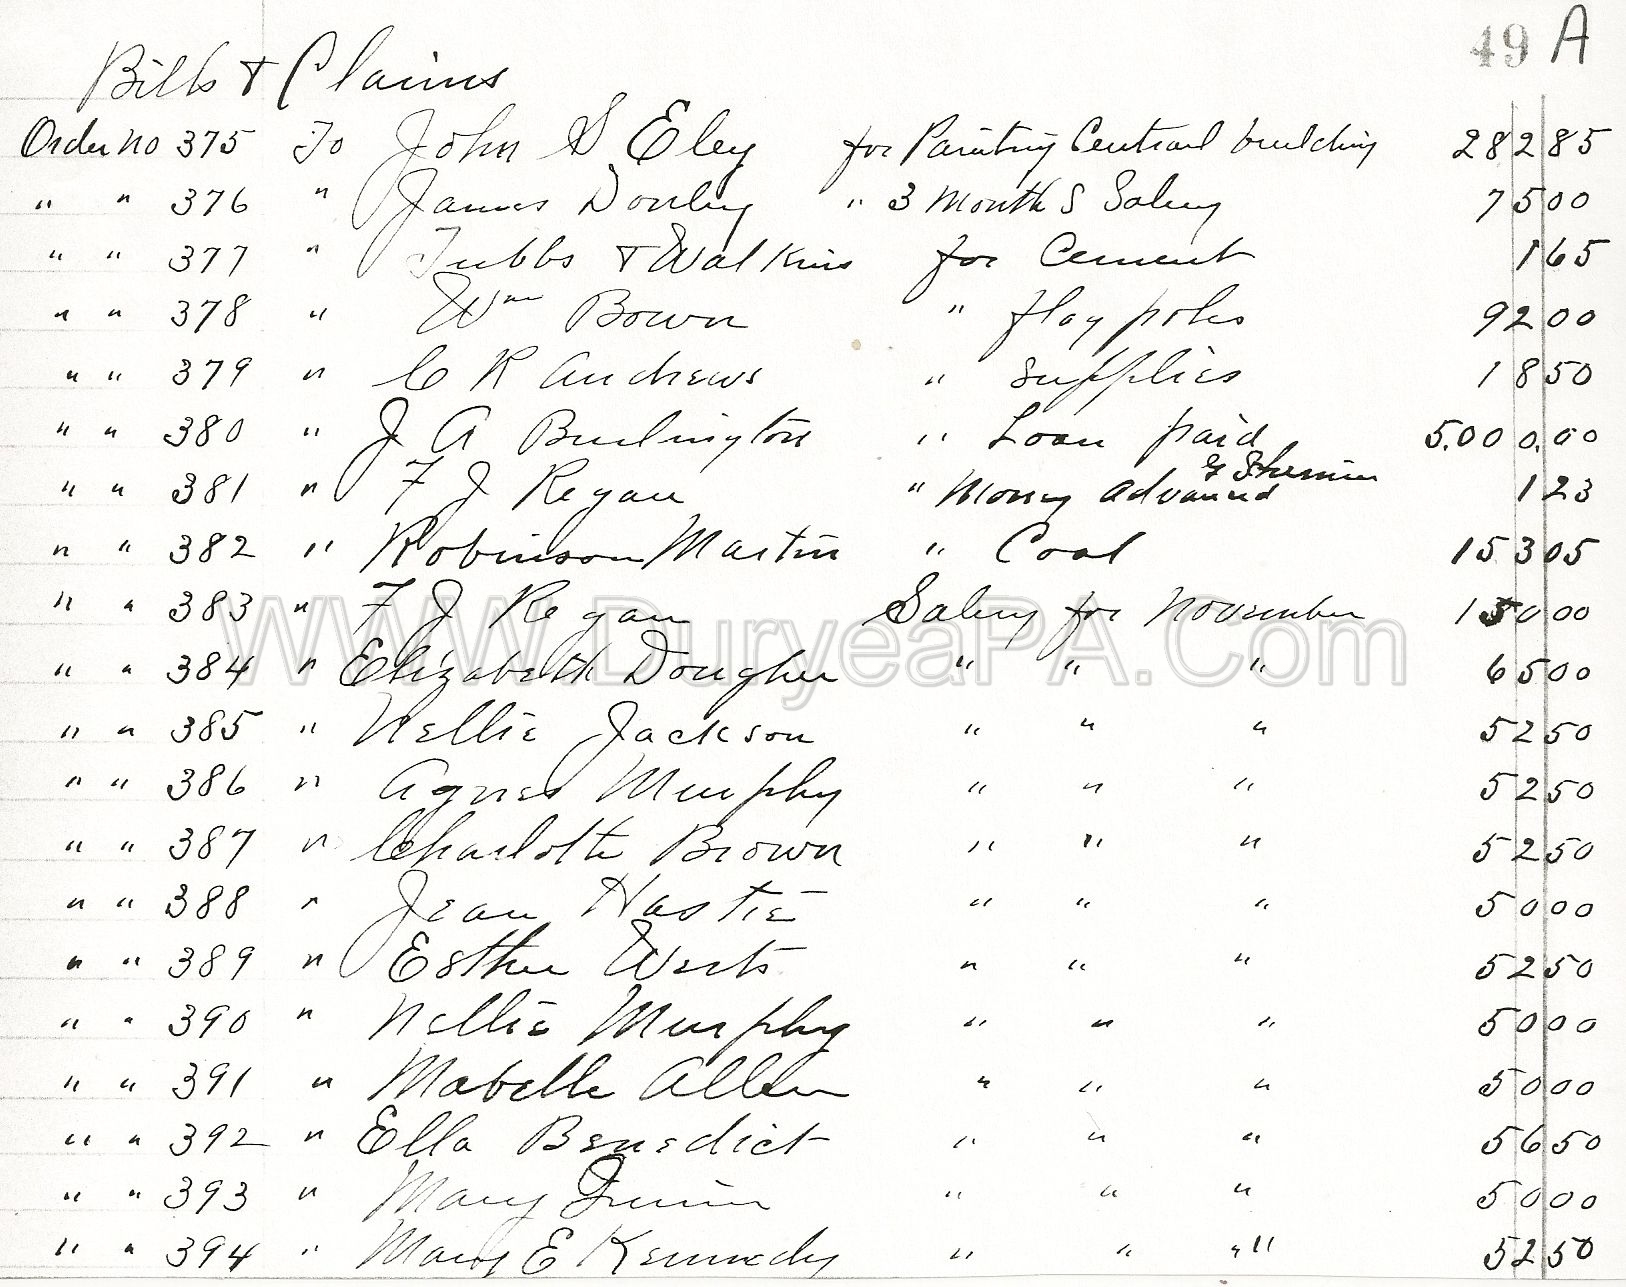 49 A
Bills & Claims
Order no 375 To John S Eley for Painting Central building 282 85
" " 376 " James Donley " 3 Months Salery 75 00
" " 377 " Tubbs & Walkins for Cement 1 65
" " 378 " Wm Bown " flag poles 92 00
" " 379 " C R Andrews " supplies 18 50
" " 380 " J A Burlington " Loan paid 5.000.00
" " 381 " F J Regan " Money advanced 1 23
" " 382 " Robinson Martin " Coal 153 05
" " 383 " F J Regan Salery for November 130 00
" " 384 " Elizabeth Dougher " " " 65 00
" " 385 " Nellie Jackson " " " 52 50
" " 386 " Agnes Murphy " " " 52 50
" " 387 " Charlotte Brown " " " 52 50
" " 388 " Jean Hastie " " " 50 00
" " 389 " Esther Werts " " " 52 50
" " 390 " Nellie Murphy " " " 50 00
" " 391 " Mabelle Allen " " " 50 00
" " 392 " Ella Benedict " " " 56 50
" " 393 " Mary " " " 50 00
" " 394 " Mary E Kennedy " " " 52 50
WWW.DuryeaPA.Com